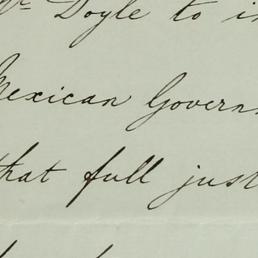 Mr Doyle to i
Mexican Govern
that full just